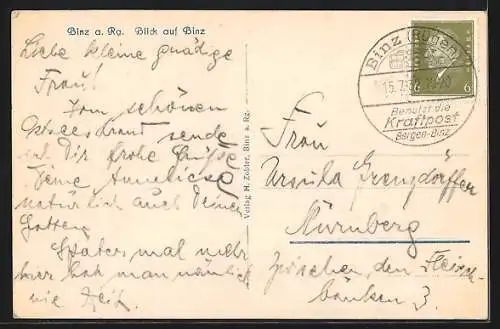 Binz a. Rg. Blick auf Binz
Liebe kleine gnädige
Frau!
Vom schönen
Ostseestrand sende
ich Dir frohe Grüße
Deine Anneliese
natürlich auch Deinem
Gatten.
Später mal mehr
hier hat man nämlich
nie Zeit.
Verlag M. Zobler, Binz a. Rg.
Binz (Rügen)
15.7.
Benutzt die
Kraftpost
Bergen-Binz
6 6
Frau
Ursula Grenzdörffer
Nürnberg
Zwischen den Fleisch-
bänken 3.